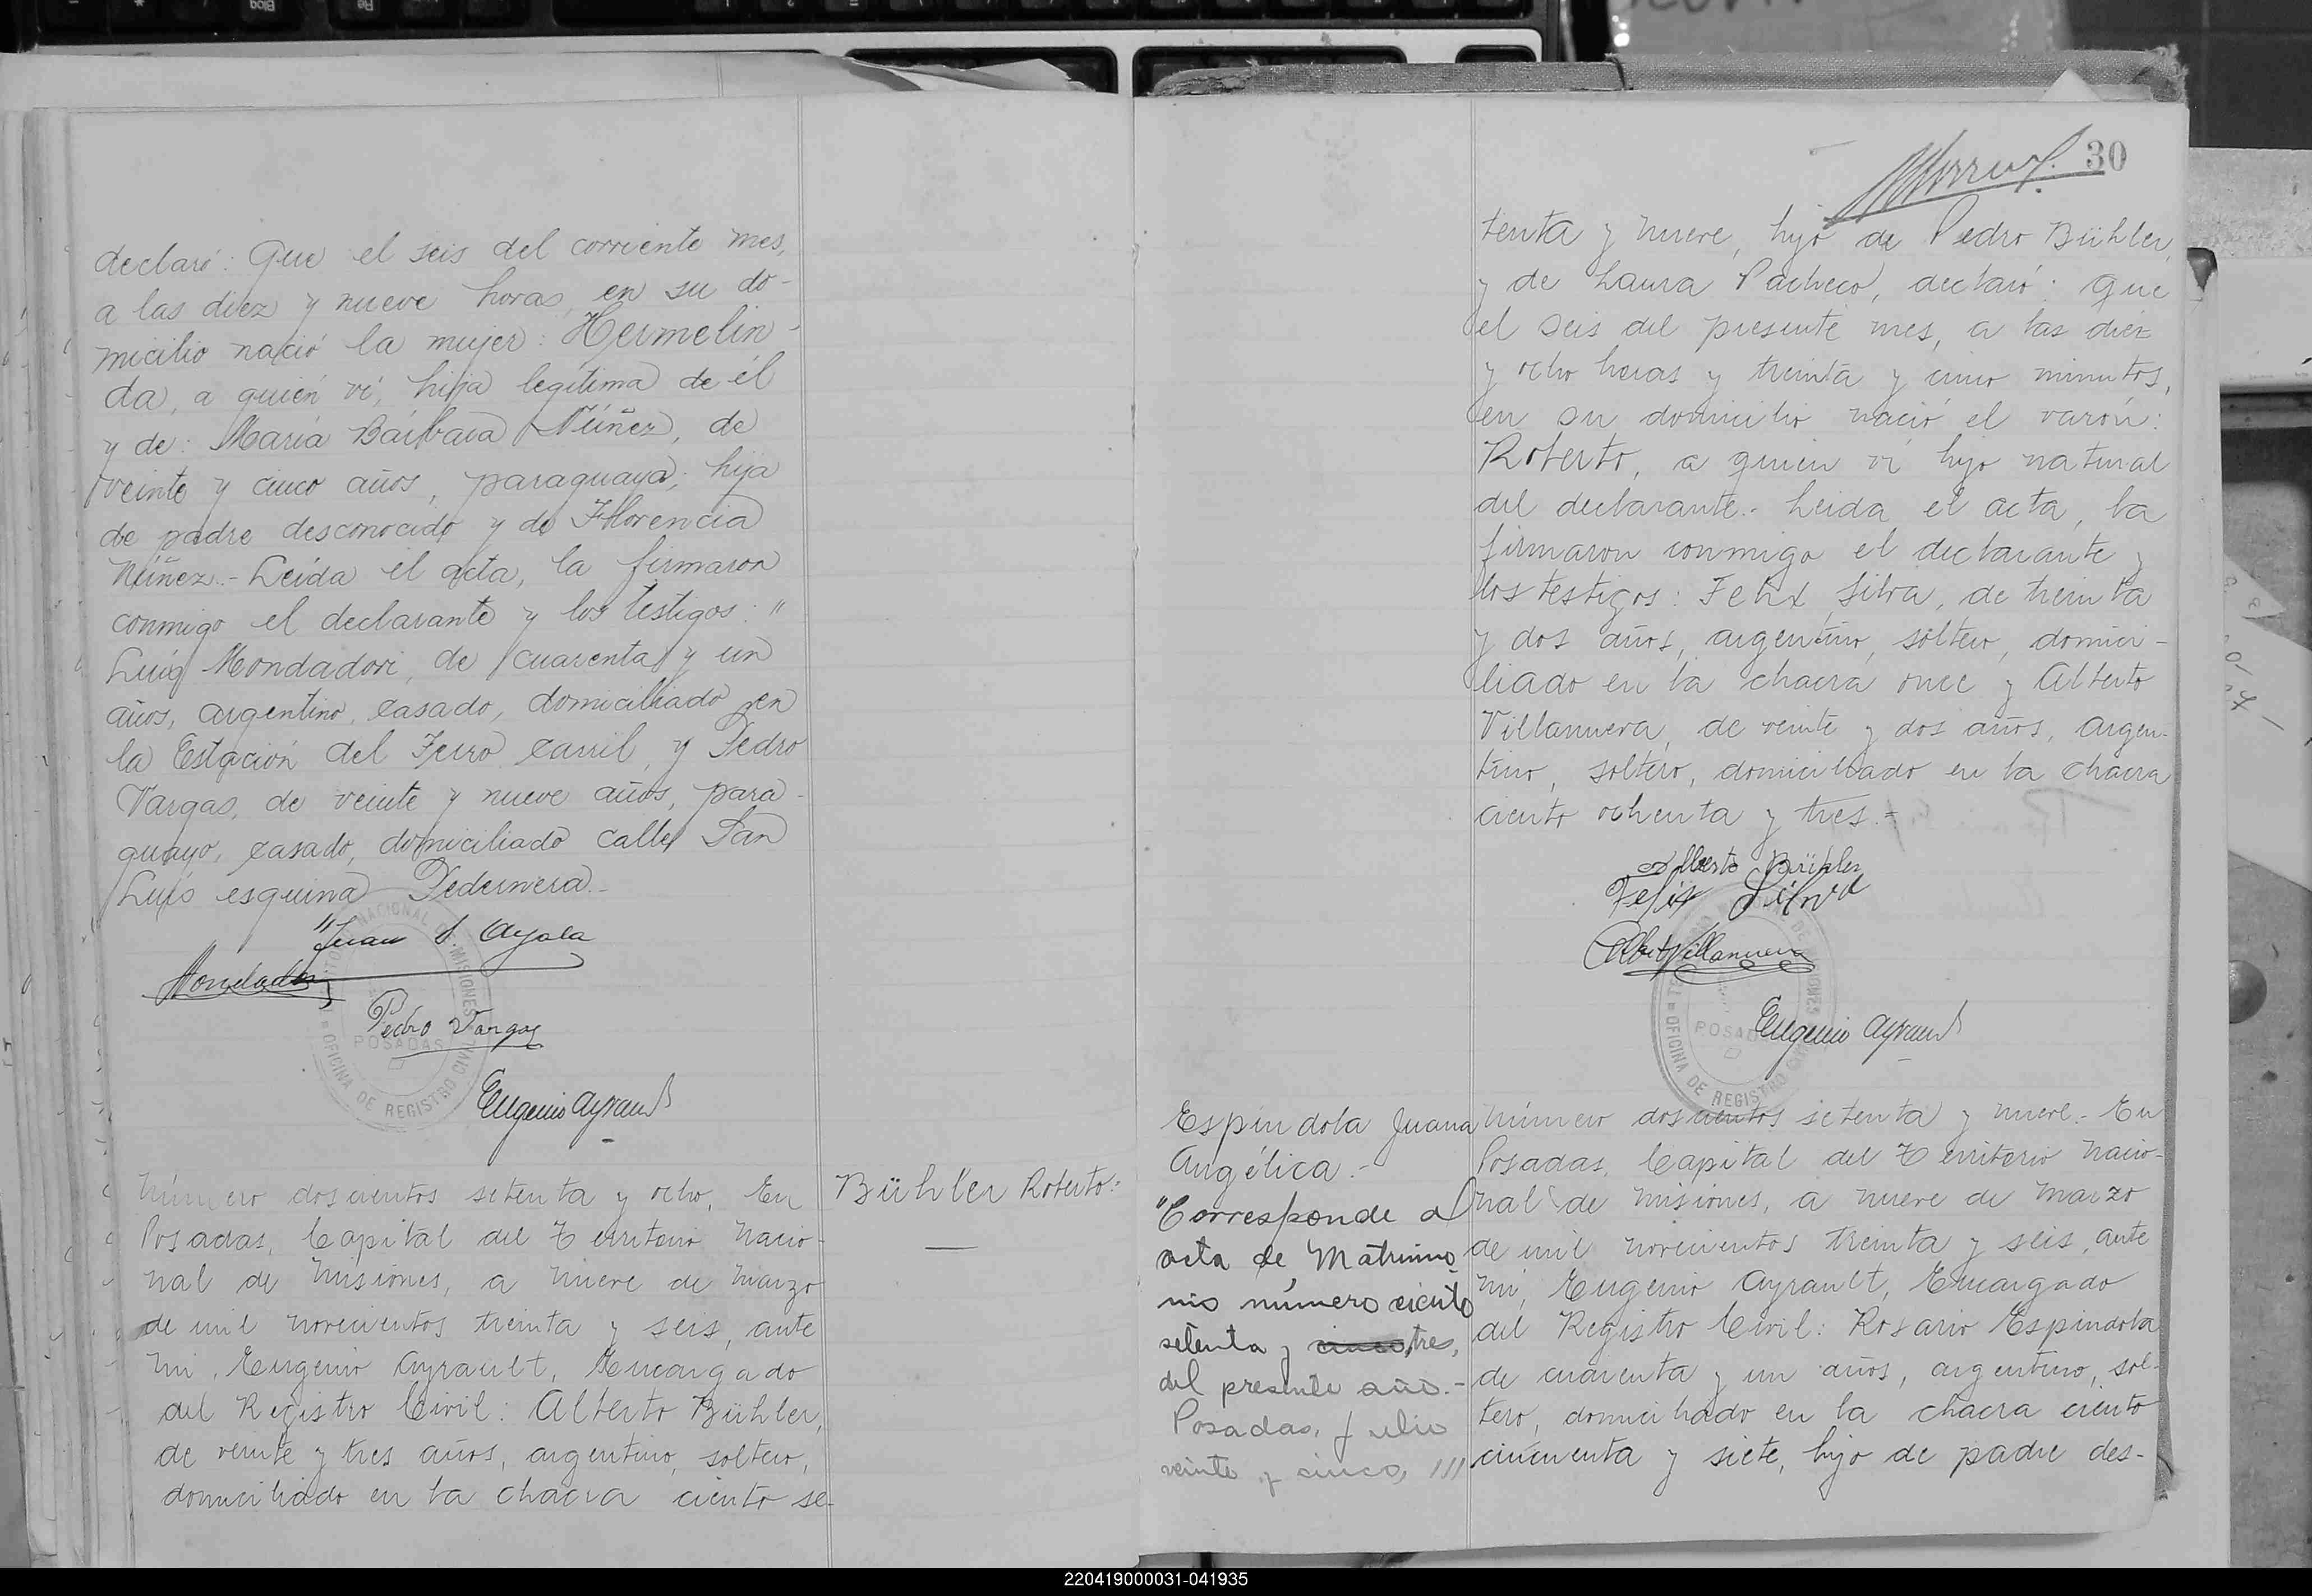 declaró: Que el seis del corriente mes,
a las diez y nueve horas, en su do-
micilio nació la mujer: Hermelin-
da, a quién ví, hija legítima de él
y de: María Bárbara Núñez, de
veinte y cinco años, paraguaya, hija
de padre desconocido y de Florencia
Núñez.- Leida el acta, la firmaron
conmigo el declarante y los testigos: "
Luis Mondadori, de cuarenta y un
años, argentino, casado, domiciliado en
la Estación del Ferro carril, y Pedro
Vargas, de veinte y nueve años, para-
guayo, casado, domiciliado calle San
Luis esquina Pedernera.-
Juan S. Ayala
Mondadori
Pedro Vargas
POSADAS
OFICINA DE REGISTRO CIVIL
Eugenio Ayrault
Número doscientos setenta y ocho. En
Posadas, Capital del Territorio Nacio-
nal de Misiones, a nueve de Marzo
de mil novecientos treinta y seis, ante
mi, Eugenio Ayrault, Encargado
del Registro Civil: Alberto Bühler,
de veinte y tres años, argentino, soltero,
domiciliado en la chacra ciento se-
Bühler Roberto.-
30
tenta y nueve, hijo de Pedro Bühler,
y de Laura Pacheco, declaró: Que
el seis del presente mes, a las diez
y ocho horas y treinta y cinco minutos,
en su domicilio nació el varón:
Roberto, a quien ví hijo natural
del declarante.- Leida el acta, la
firmaron conmigo el declarante y
los testigos: Felix Silva, de treinta
y dos años, argentino, soltero, domici-
liado en la chacra once y Alberto
Villanueva, de veinte y dos años, argen-
tino, soltero, domiciliado en la chacra
ciento ochenta y tres.=
Alberto Bühler
Felix Silva
Alb Villanueva
POSADAS
OFICINA DE REGISTRO CIVIL
Eugenio Ayrault
Espíndola Juana
Angélica.-
"Corresponde al
acta de Matrimo-
nio número ciento
setenta y cinco tres,
del presente año.-
Posadas, Julio
veinte y cinco, ///
Número doscientos setenta y nueve.- En
Posadas, Capital del Territorio Nacio-
nal de Misiones, a nueve de Marzo
de mil novecientos treinta y seis, ante
mi, Eugenio Ayrault, Encargado
del Registro Civil: Rosario Espíndola
de cuarenta y un años, argentino, sol-
tero, domiciliado en la chacra ciento
cincuenta y siete, hijo de padre des-
220419000031-041935